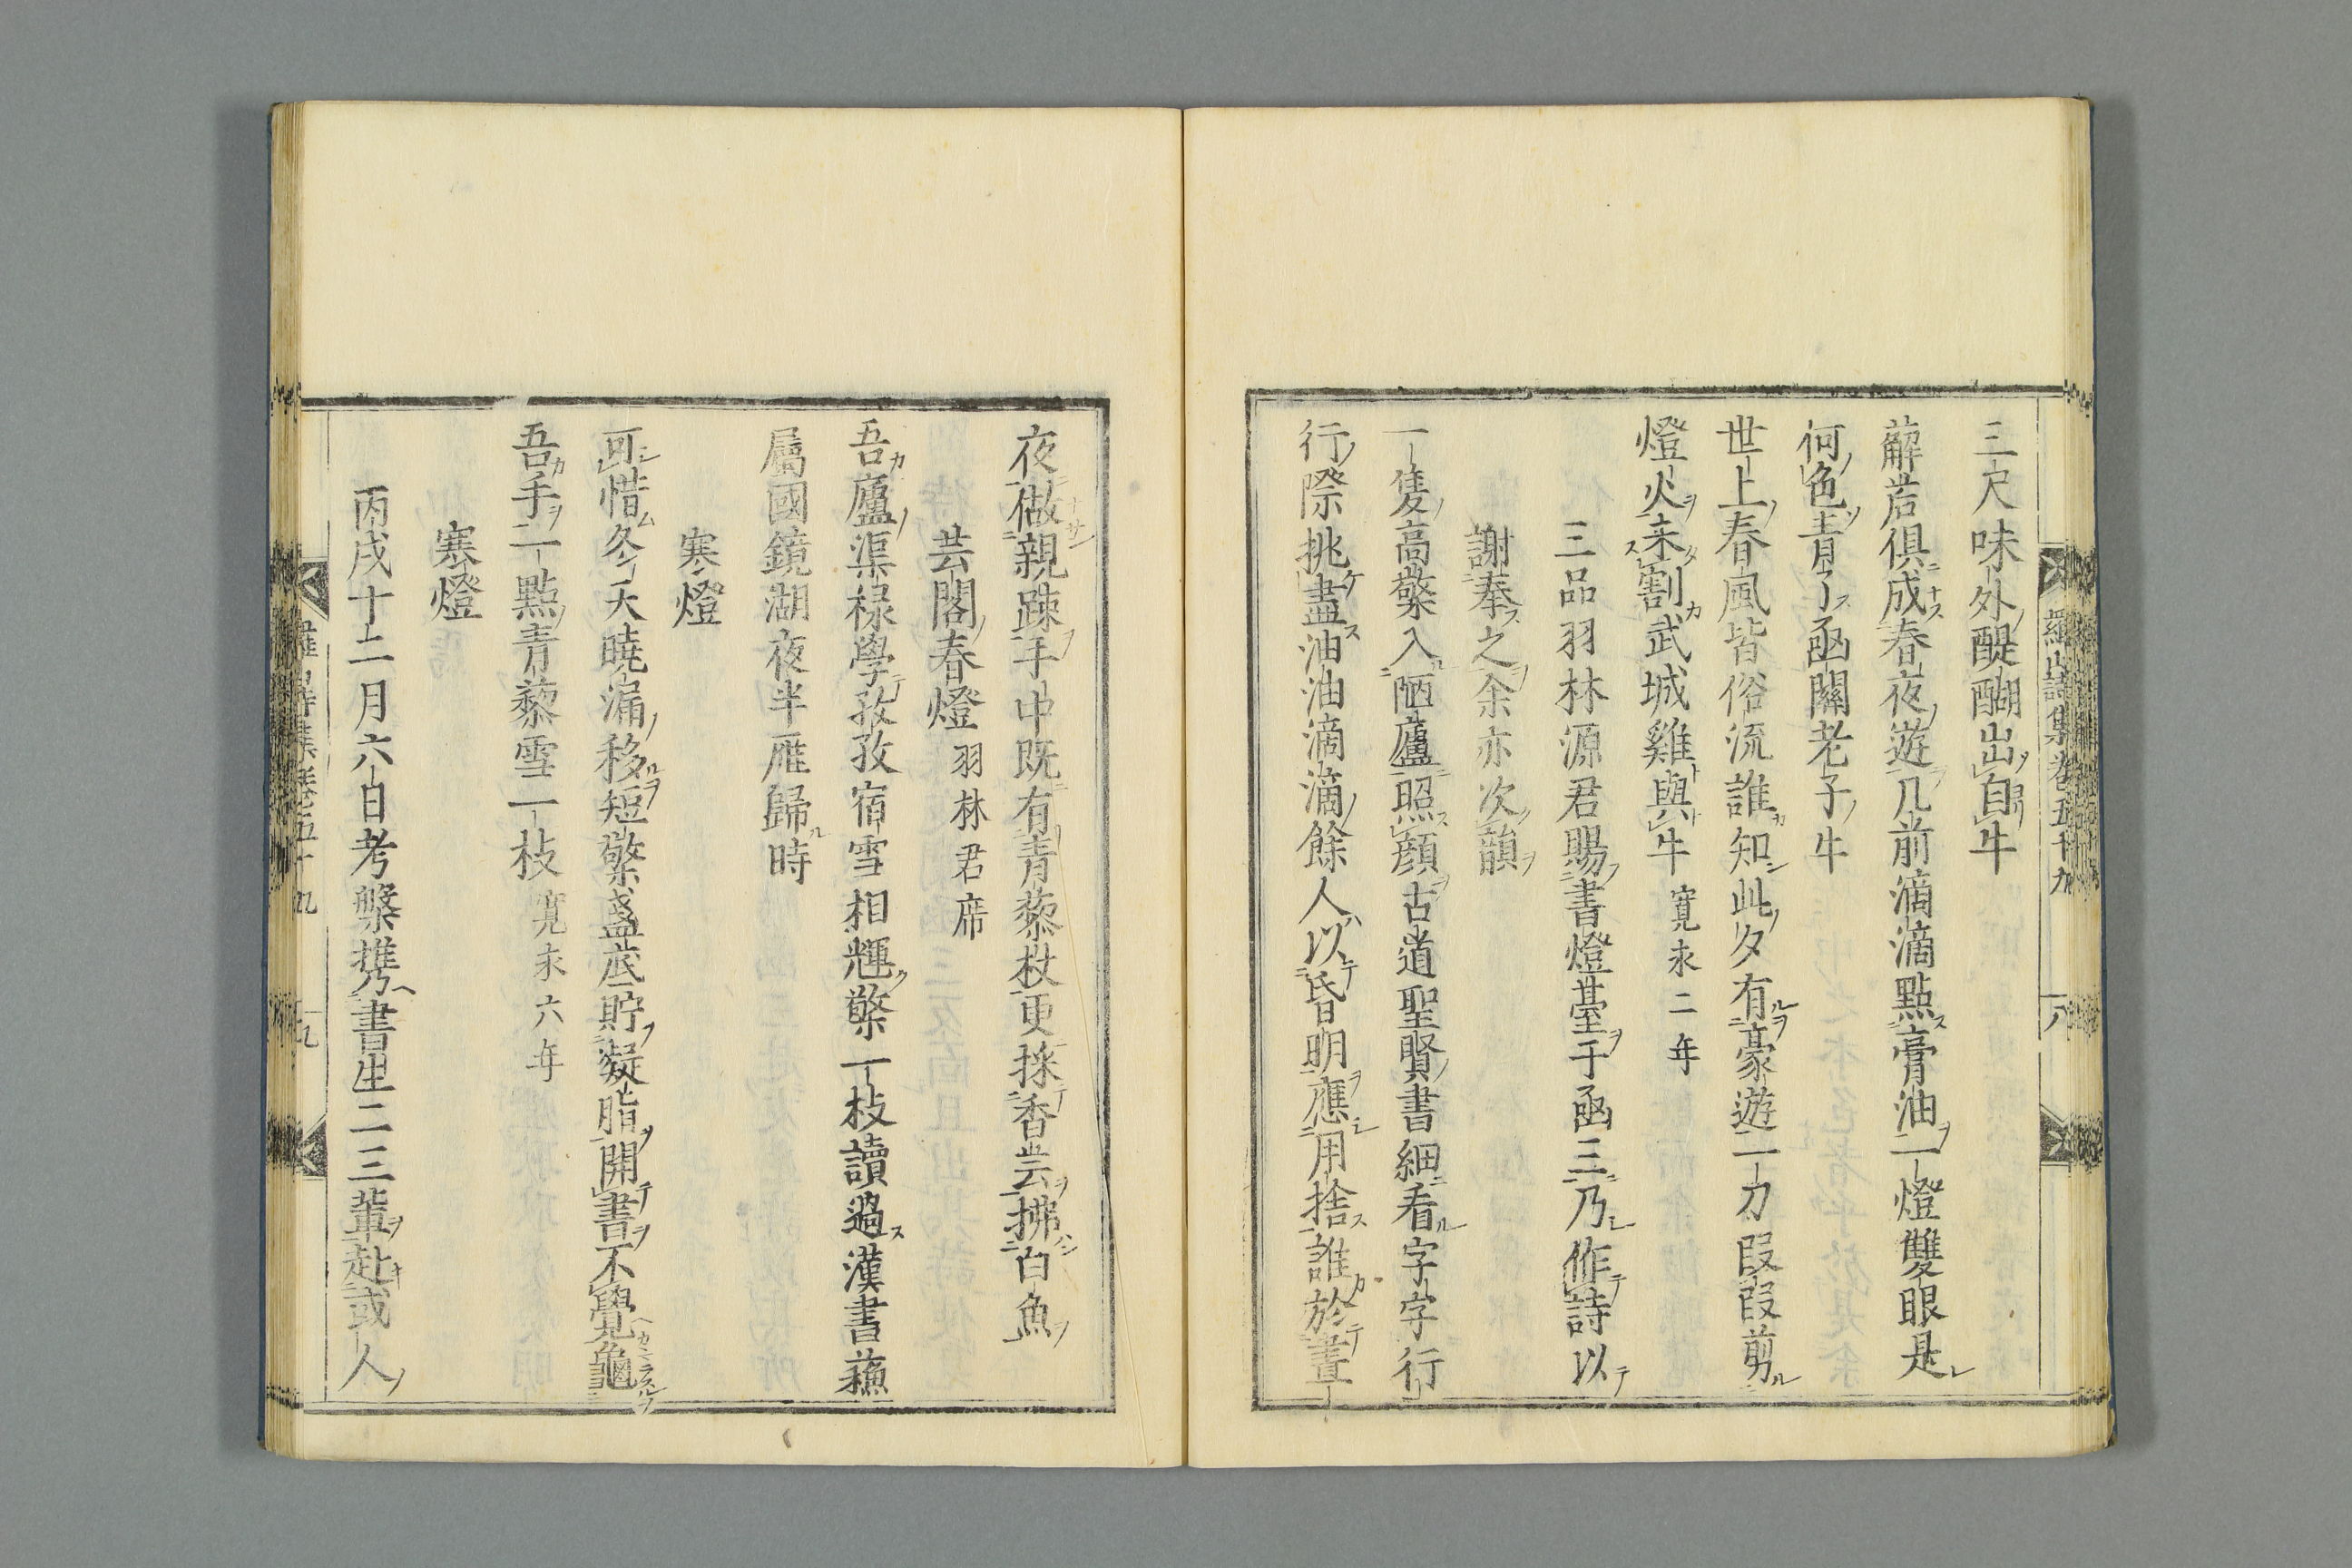 三尺味外醍醐出自牛
薢若俱成春夜遊几前滴滴點膏油一燈雙眼是
何色青了函關老子牛
世上春風皆俗流誰知此夕有豪遊一刀叚叚剪
燈火来割武城雞與牛寛永二年
三品羽林源君賜書燈臺于函三乃作詩以
謝奉之余亦次韻
一隻高檠入陋廬照顔古道聖賢書細看字字行
行際挑盡油油滴滴餘人以昏明應用捨誰於晝
夜做親踈手中既有青藜杖更採香芸拂白魚
芸閣春燈羽林君席
吾廬渠祿學孜孜宿雪相輝檠一枝讀過漢書蘓
屬國鏡湖夜半雁歸時
寒燈
可惜冬天曉漏移短檠盞底貯凝脂開書不覺龜
吾手一點青藜雪一枝寛永六年
寒燈
丙戌十二月六日考槃携書生二三輩赴或人
羅山詩集卷五十九
八
羅山詩集卷五十九
九